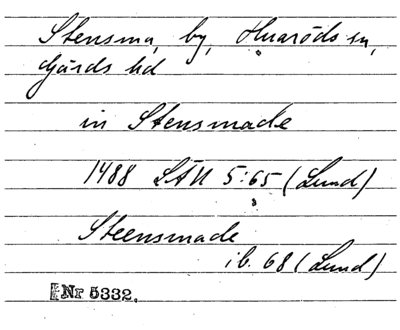 Stensma, by, Huaröds sn,
Gärds hd
in Stensmade
1488 LÄU 5:65 (Lund)
Steensmade
ib. 68 (Lund)
Nr 5332.